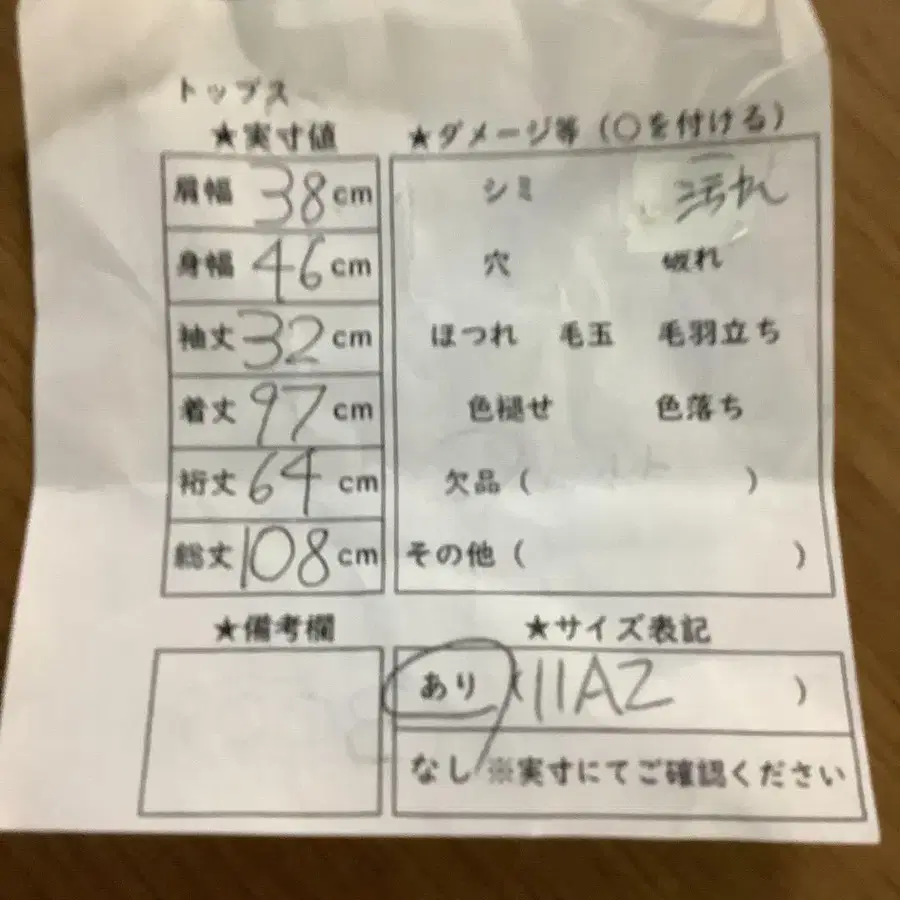 トップス
★実寸値
肩幅 38cm
身幅 46cm
袖丈 32cm
着丈 97cm
裄丈 64cm
総丈 108cm
★ダメージ等（○を付ける）
シミ 汚れ
穴 破れ
ほつれ 毛玉 毛羽立ち
色褪せ 色落ち
欠品（ ）
その他（ ）
★備考欄
★サイズ表記
あり（11A2 ）
なし ※実寸にてご確認ください